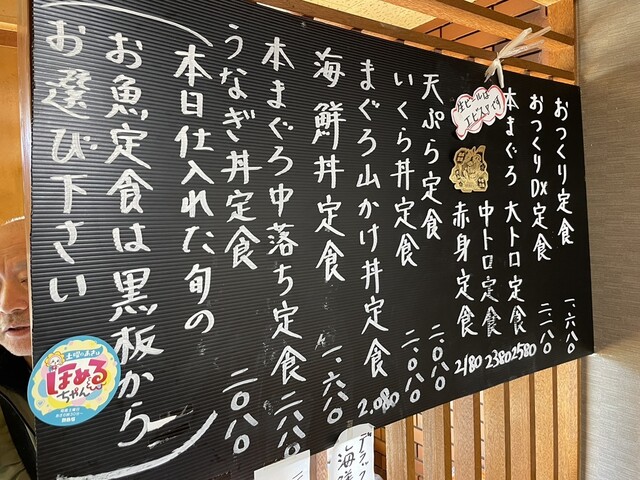 おつくり定食 一、六八〇
おつくりDX定食 二、一八〇
本まぐろ 大トロ定食 2580
中トロ定食 2380
赤身定食 2180
生ビールは
エビスです
天ぷら定食 二、〇八〇
いくら丼定食 二、〇八〇
まぐろ山かけ丼定食 2.080
海鮮丼定食 一、六八〇
本まぐろ中落ち定食 二、一八〇
うなぎ丼定食 二、〇八〇
本日仕入れた旬の
お魚定食は黒板から
お選び下さい
土曜のあさは
ほめる
ちゃんと
海鮮